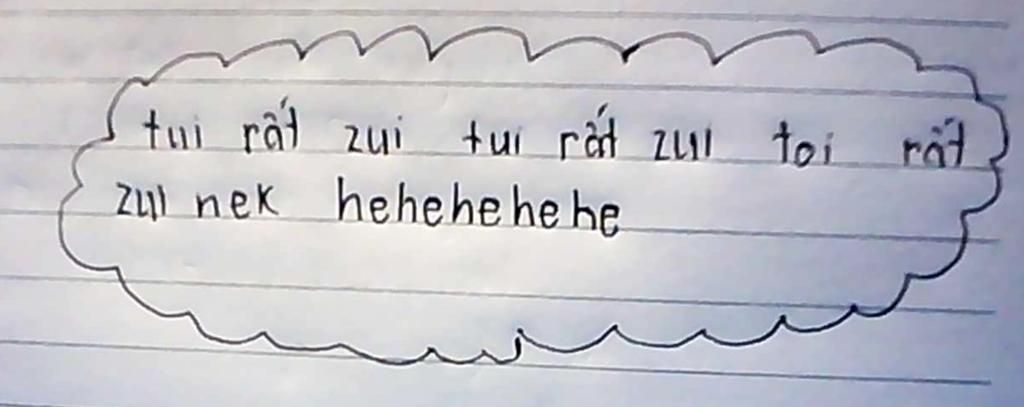 tui rất zui tui rất zui toi rất
zui nek hehehehehe